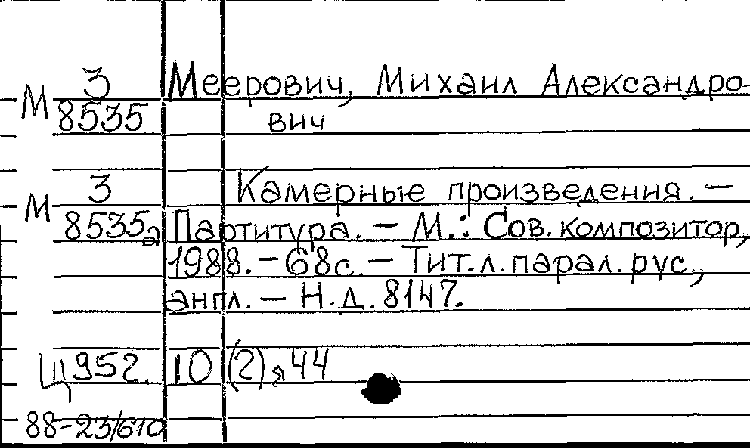 М 3/8535 Меерович, Михаил Александро
вич
М 3/8535а Камерные произведения. –
Партитура. – М.: Сов. композитор,
1988. – 68с. – Тит. л. парал. рус.,
англ. – Н. д. 8147.
Ц952. 10 (2)я44
88-23/610